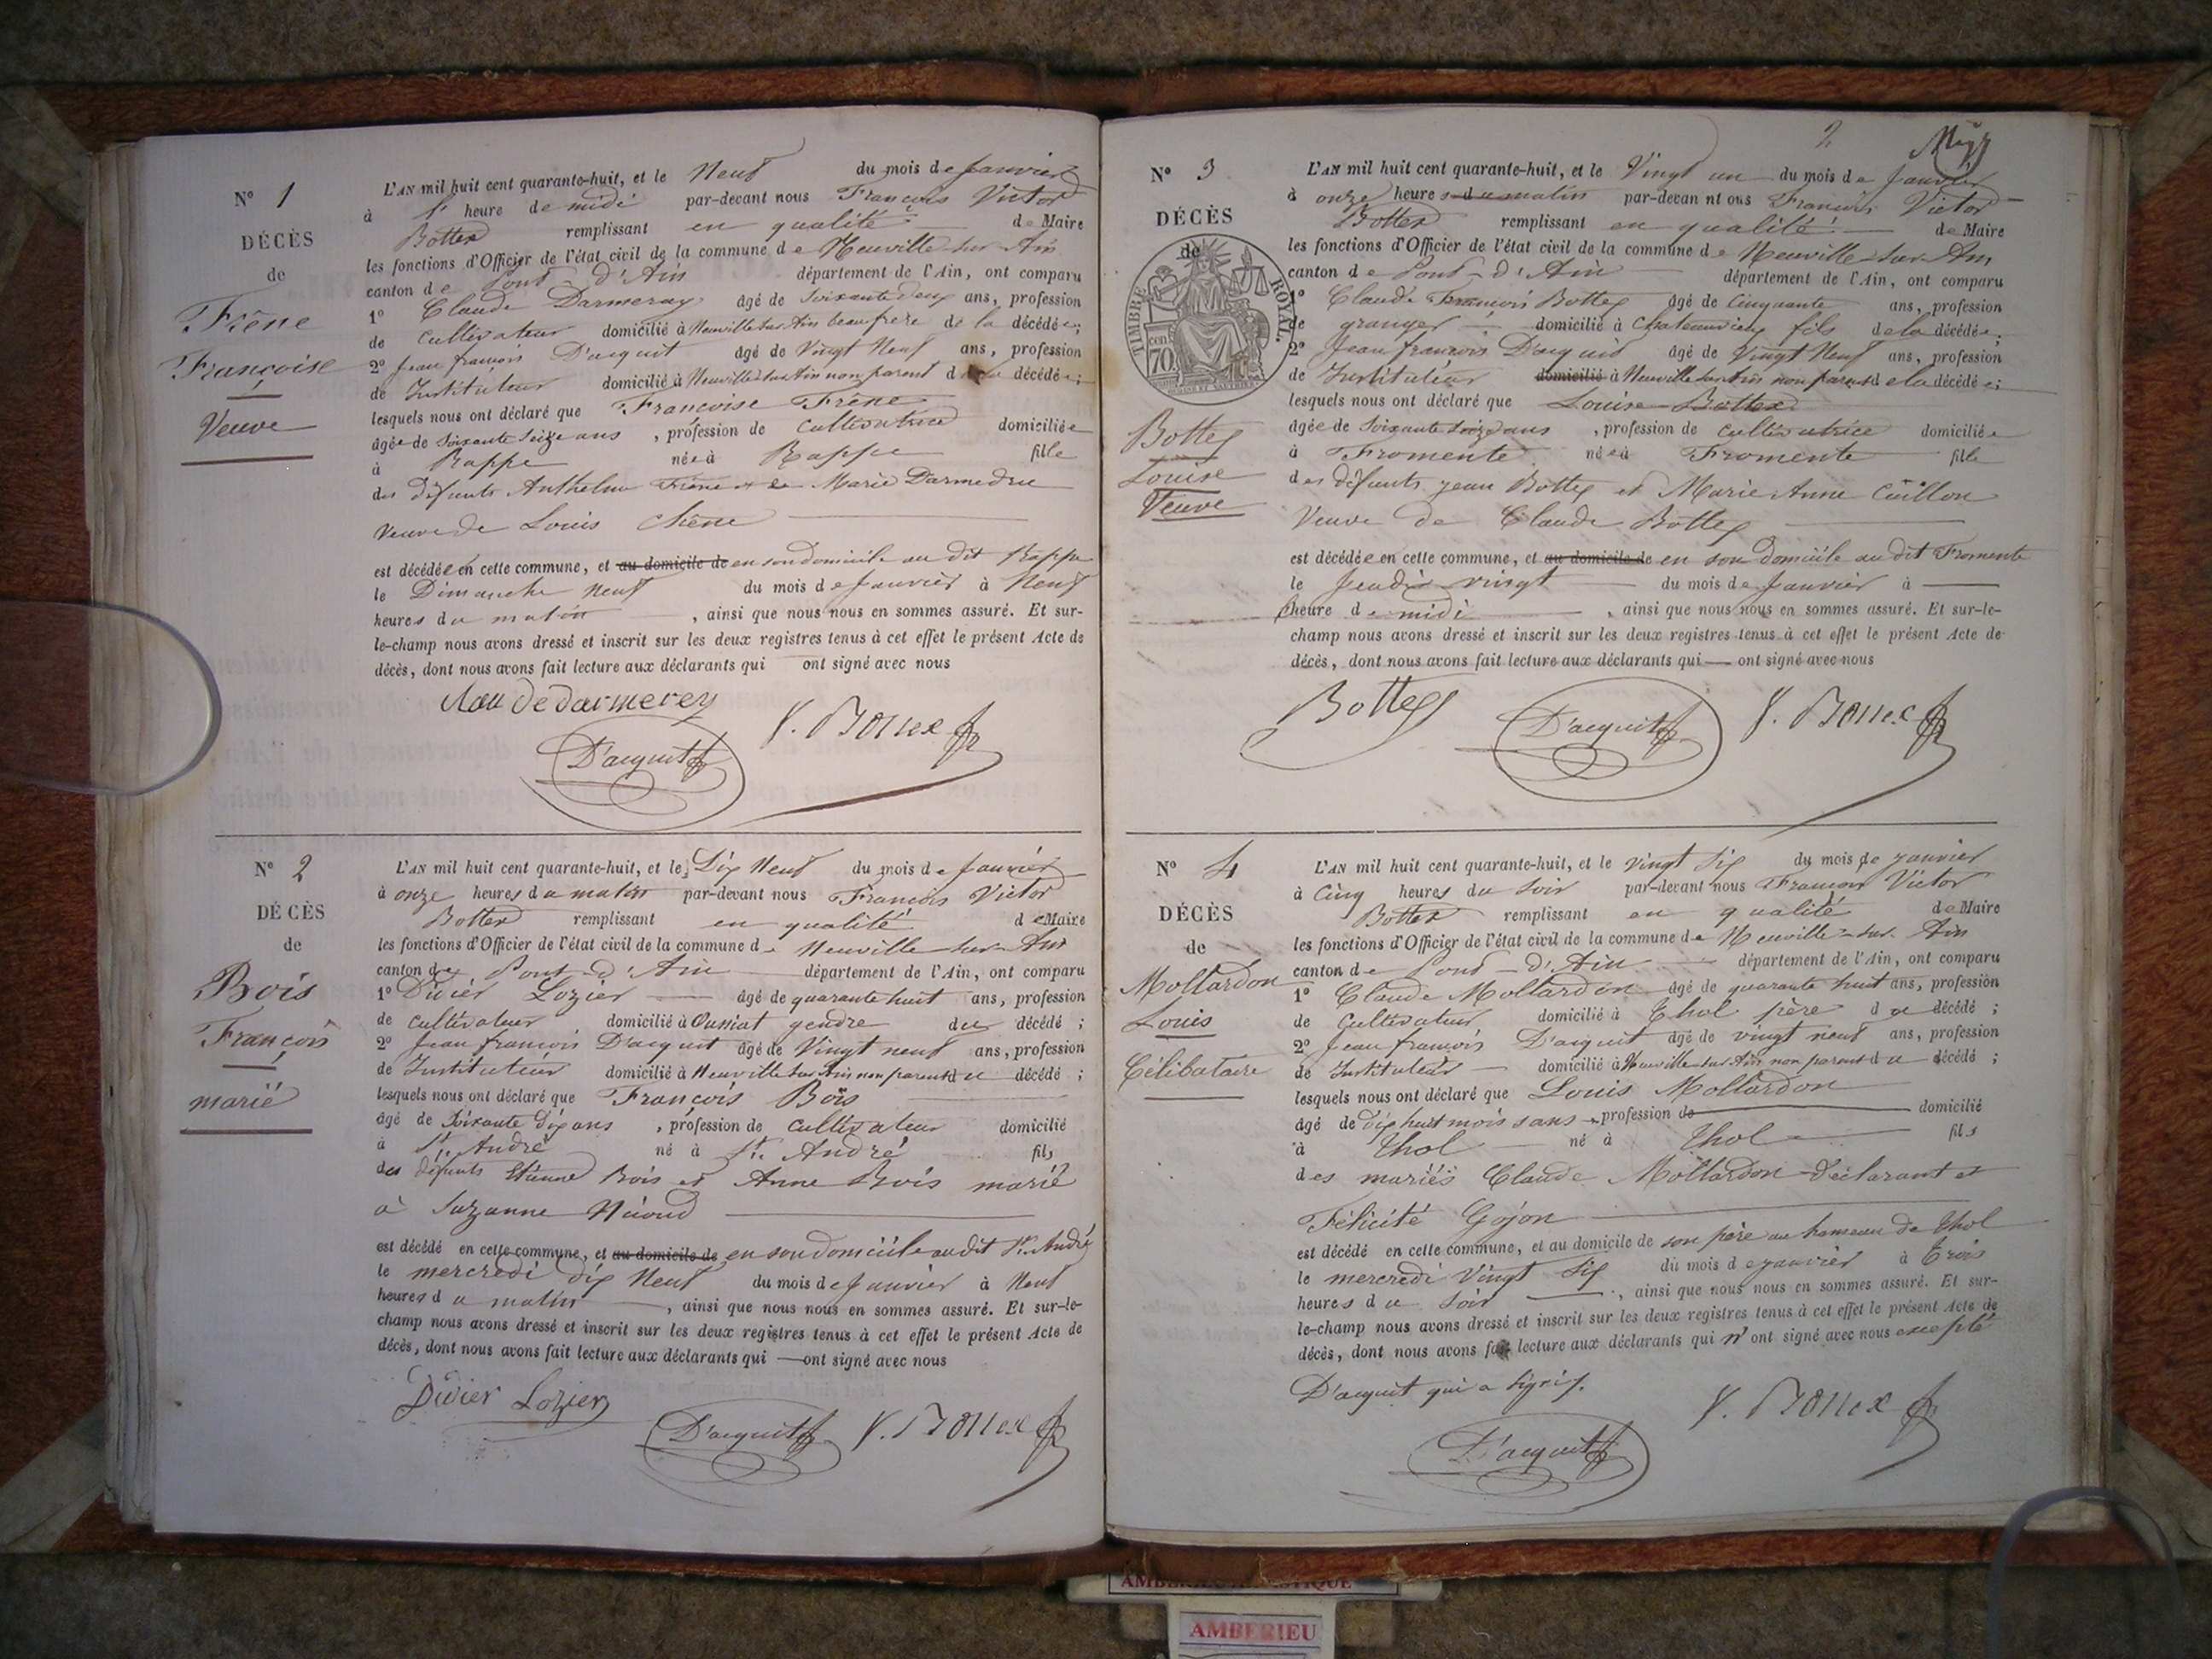 N° 1
DÉCÈS
de
Frêne
Françoise
Veuve
L'AN mil huit cent quarante-huit, et le Neuf du mois de Janvier
à 1h heure de midi par-devant nous François Victor
Bottex remplissant en qualité de Maire
les fonctions d'Officier de l'état civil de la commune de Neuville sur Ain
canton de Pont d'Ain département de l'Ain, ont comparu
1° Claude Darmeray âgé de Soixante deux ans, profession
de Cultivateur domicilié à Neuville sur Ain beau frere de la décédée;
2° Jean françois D'acquit âgé de Vingt Neuf ans, profession
de Instituteur domicilié à Neuville sur Ain non parent de la décédée;
lesquels nous ont déclaré que Françoise Frêne
âgée de Soixante Seize ans, profession de Cultivatrice domiciliée
à Rappe née à Rappe fille
des défunts Anthelme Frêne et de Marie Darmedru
Veuve de Louis Chêne
est décédée en cette commune, et au domicile de en son domicile au dit Rappe
le Dimanche Neuf du mois de Janvier à Neuf
heures du matin, ainsi que nous nous en sommes assuré. Et sur-
le-champ nous avons dressé et inscrit sur les deux registres tenus à cet effet le présent Acte de
décès, dont nous avons fait lecture aux déclarants qui ont signé avec nous
Claude darmerey
D'acquit V. Bottex
N° 2
DÉCÈS
de
Bois
François
marié
L'AN mil huit cent quarante-huit, et le Dix Neuf du mois de Janvier
à onze heures du matin par-devant nous François Victor
Bottex remplissant en qualité de Maire
les fonctions d'Officier de l'état civil de la commune de Neuville sur Ain
canton de Pont-d'Ain département de l'Ain, ont comparu
1° Didier Lozier âgé de quarante huit ans, profession
de Cultivateur domicilié à Oussiat gendre du décédé;
2° Jean françois D'acquit âgé de Vingt neuf ans, profession
de Instituteur domicilié à Neuville sur Ain non parent du décédé;
lesquels nous ont déclaré que François Bois
âgé de Soixante Dix ans, profession de Cultivateur domicilié
à St. André né à St. André fils
des défunts Etienne Bois et Anne Bois marié
à Suzanne Niroud
est décédé en cette commune, et au domicile de en son domicile au dit St. André
le mercredi dix Neuf du mois de Janvier à Neuf
heures du matin, ainsi que nous nous en sommes assuré. Et sur-le-
champ nous avons dressé et inscrit sur les deux registres tenus à cet effet le présent Acte de
décès, dont nous avons fait lecture aux déclarants qui ont signé avec nous
Didier Lozier
D'acquit V. Bottex
2
N° 3
DÉCÈS
de
TIMBRE ROYAL.
cen 70
Bottex
Louise
Veuve
L'AN mil huit cent quarante-huit, et le Vingt un du mois de Janvier
à onze heures du matin par-devan nt ous François Victor
Bottex remplissant en qualité de Maire
les fonctions d'Officier de l'état civil de la commune de Neuville-sur Ain
canton de Pont-d'Ain département de l'Ain, ont comparu
1° Claude François Bottex âgé de Cinquante ans, profession
de granger domicilié à Chateauvieux fils de la décédée;
2° Jean françois D'acquit âgé de Vingt Neuf ans, profession
de Instituteur domicilié à Neuville sur Ain non parent de la décédée;
lesquels nous ont déclaré que Louise Bottex
âgée de Soixante Seize ans, profession de Cultivatrice domiciliée
à Fromente née à Fromente fille
des défunts Jean Bottex et Marie Anne Cuillon
Veuve de Claude Bottex
est décédée en cette commune, et au domicile de en son Domicile au dit Fromente
le Jeudi vingt du mois de Janvier à
heure de midi, ainsi que nous nous en sommes assuré. Et sur-le-
champ nous avons dressé et inscrit sur les deux registres tenus à cet effet le présent Acte de
décès, dont nous avons fait lecture aux déclarants qui ont signé avec nous
Bottex D'acquit V. Bottex
N° 4
DÉCÈS
de
Mollardon
Louis
Célibataire
L'AN mil huit cent quarante-huit, et le vingt Six du mois de janvier
à Cinq heures du Soir par-devant nous François Victor
Bottex remplissant en qualité de Maire
les fonctions d'Officier de l'état civil de la commune de Neuville-sur Ain
canton de Pont-d'Ain département de l'Ain, ont comparu
1° Claude Mollardon âgé de quarante huit ans, profession
de Cultivateur domicilié à Thol père du décédé;
2° Jean françois D'acquit âgé de vingt neuf ans, profession
de Instituteur domicilié à Neuville sur Ain non parent du décédé;
lesquels nous ont déclaré que Louis Mollardon
âgé de dix huit mois sans profession de domicilié
à Thol né à Thol fils
des mariés Claude Mollardon déclarant et
Félicité Gojon
est décédé en cette commune, et au domicile de son père au hameau de Thol
le mercredi vingt Six du mois de janvier à Trois
heures du Soir, ainsi que nous nous en sommes assuré. Et sur-
le-champ nous avons dressé et inscrit sur les deux registres tenus à cet effet le présent Acte de
décès, dont nous avons fait lecture aux déclarants qui n'ont signé avec nous excepté
D'acquit qui a signé.
D'acquit V. Bottex
AMBERIEU